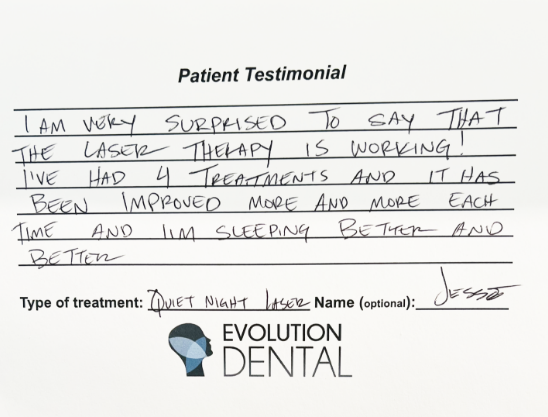 Patient Testimonial
I AM VERY SURPRISED TO SAY THAT
THE LASER THERAPY IS WORKING!
I'VE HAD 4 TREATMENTS AND IT HAS
BEEN IMPROVED MORE AND MORE EACH
TIME AND I'M SLEEPING BETTER AND
BETTER
Type of treatment: QUIET NIGHT LASER Name (optional): JESSE
EVOLUTION
DENTAL